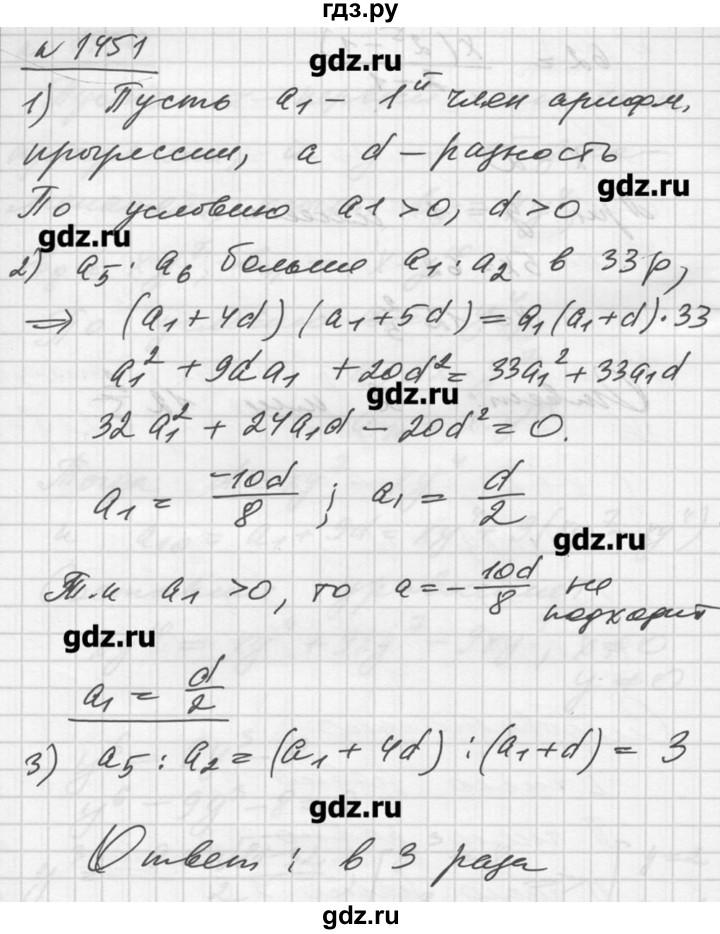 гдз.ру
№ 1451
gdz.ru
1) Пусть a₁ – 1й член арифм.
прогрессии, а d – разность
gdz.ru
По условию a1 > 0, d > 0
gdz.ru
2) a₅ · a₆ больше a₁ · a₂ в 33 р,
⇒ (a₁ + 4d) (a₁ + 5d) = a₁ (a₁ + d) · 33
a₁² + 9da₁ + 20d² = 33a₁² + 33a₁d
gdz.ru
32a₁² + 24a₁d – 20d² = 0.
a₁ = –10d/8 ; a₁ = d/2
gdz.ru
Т.к a₁ > 0, то a = – 10d/8 не
подходит
gdz.ru
a₁ = d/2
3) a₅ : a₂ = (a₁ + 4d) : (a₁ + d) = 3
gdz.ru
Ответ: в 3 раза
gdz.ru